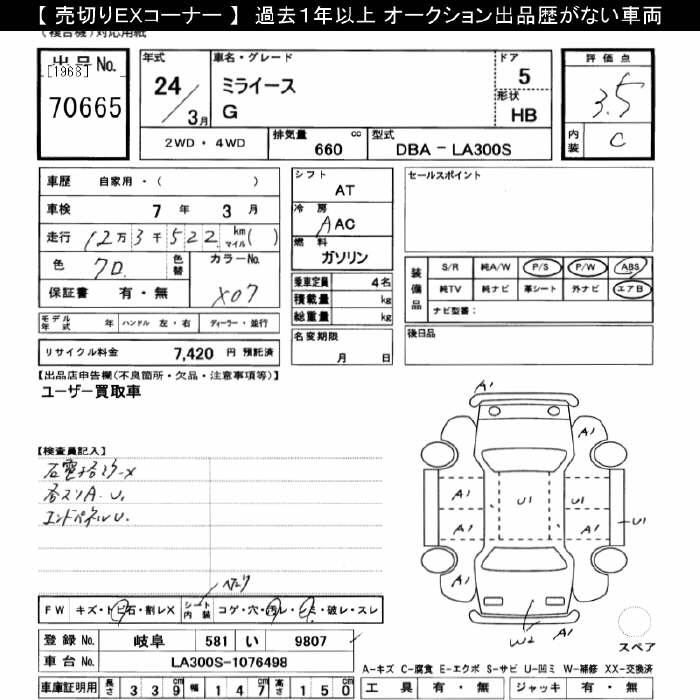 【 売切りEXコーナー 】 過去1年以上 オークション出品歴がない車両
(複合機)対応用紙
出品No.
[1968]
70665
年式
24/3月
車名・グレード
ミライース
G
ドア
5
形状
HB
評価点
3.5
内装
C
2WD・4WD
排気量 660 cc
型式 DBA - LA300S
車歴 自家用・( )
車検 7年 3月
走行 12万3千522 km マイル ( )
色 クロ
色替
カラーNo.
X07
保証書 有・無
モデル年式 年 ハンドル 左・右 ディーラー・並行
リサイクル料金 7,420 円 預託済
シフト
AT
冷房
AAC
燃料
ガソリン
乗車定員 4名
積載量 kg
総重量 kg
名変期限
月 日
セールスポイント
装備品
S/R 純A/W P/S P/W ABS
純TV 純ナビ 革シート 外ナビ エアB
ナビ型番:
後日品
【出品店申告欄(不良箇所・欠品・注意事項等)】
ユーザー買取車
【検査員記入】
右電格ミラーX
各スソA.U.
エンドパネルU.
FW キズ・トビ石・割レX
シート内装
コゲ・穴・汚レ・シミ・破レ・スレ
登録No. 岐阜 581 い 9807
車台No. LA300S-1076498
車庫証明用 長さ 339cm 幅 147cm 高さ 150cm
A1
A1
A1
A1
A1
U1
A1
A1
A1
U1
A1
A1
W2
スペア
A-キズ C-腐食 E-エクボ S-サビ U-凹ミ W-補修 XX-交換済
工具 有・無 ジャッキ 有・無